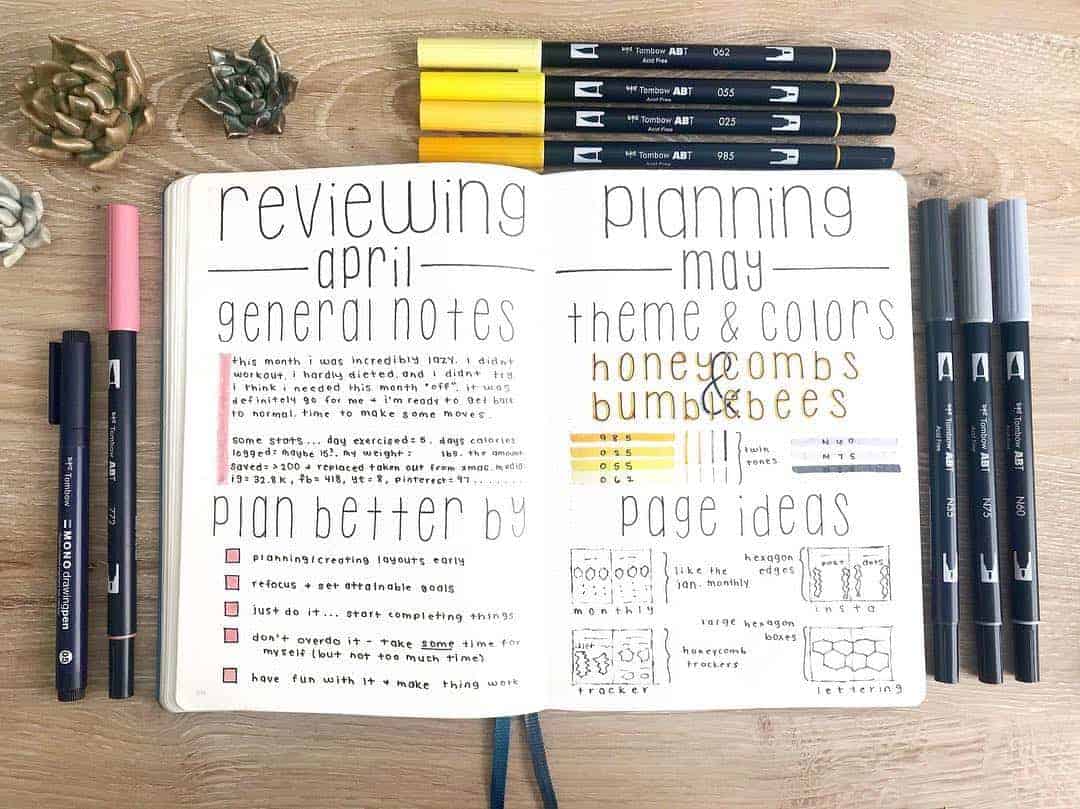 Tombow ABT 062
Acid Free
Tombow ABT 055
Acid Free
Tombow ABT 025
Acid Free
Tombow ABT 985
reviewing
april
general notes
this month i was incredibly lazy. i didnt
workout, i hardly dieted, and i didnt try.
i think i needed this month "off". it was
definitely go for me + i'm ready to get back
to normal. time to make some moves.
some stats... day exercised = 5, days calories
logged = maybe 15?, my weight = lbs. the amount
saved = >200 + replaced taken out from xmas, media
ig = 32.8k, fb = 418, yt = 8, pinterest = 97........
plan better by
planning/creating layouts early
refocus + set attainable goals
just do it... start completing things
don't overdo it - take some time for
myself (but not too much time)
have fun with it + make thing work
planning
may
theme & colors
honeycombs
&
bumblebees
985
025
055
062
twin
tones
N60
N75
N35
page ideas
monthly
like the
jan. monthly
hexagon
edges
post
dots
insta
tracker
honeycomb
trackers
large hexagon
boxes
lettering
Tombow
MONO drawing pen
05
Tombow ABT
772
Tombow ABT
Acid Free
N35
Tombow ABT
Acid Free
N75
Tombow ABT
Acid Free
N60